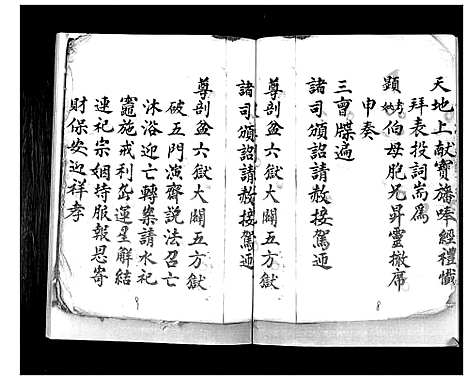 天地上献寳旛唪經禮懺
拜表投詞耑為
顕妣伯母胞兄昇靈撤席
申奏
三會牒遍
諸司頒詔請赦接駕迊
尊剖盆六獄大闢五方獄
諸司頒詔請赦接駕迊
尊剖盆六獄大闢五方獄
破五門演齋説法召亡
沐浴迎亡轉案請水祀
竈施戒利𣦸運星觧結
連祀宗姻持服報恩寄
財保安迎祥孝